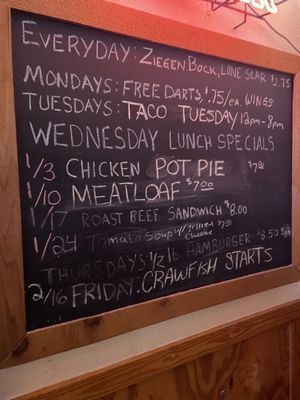 EVERYDAY: ZIEGENBOCK, LONE STAR $2.75
MONDAYS: FREE DARTS $.75/ea. WINGS
TUESDAYS: TACO TUESDAY 12pm-8pm
WEDNESDAY LUNCH SPECIALS
1/3 CHICKEN POT PIE $7.00
1/10 MEATLOAF $7.00
1/17 ROAST BEEF SANDWICH $8.00
1/24 TOMATO SOUP W/ GRILLED CHEESE $7.00
THURSDAYS: 1/2 lb HAMBURGER $8.50
2/16 FRIDAY: CRAWFISH STARTS